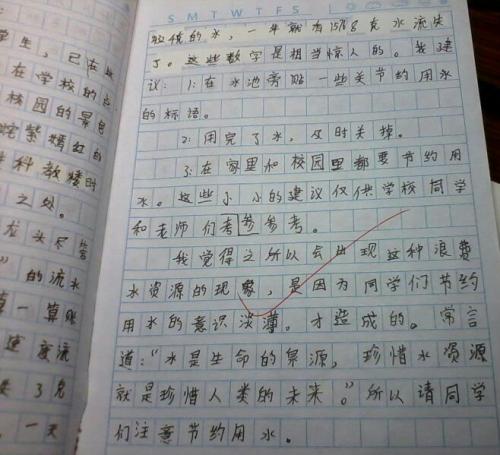 SMTWTFS
较传的水，一年就有15768克水流失
了。这些数字是相当惊人的。我建
议：1:在水池旁贴一些关节约用水
的标语。
2:用完了水，及时关掉。
3:在家里和校园里都要节约用
水。这些小小的建议仅供学校同学
和老师们考参参考。
我觉得之所以会出现这种浪费
水资源的现象，是因为同学们节约
用水的意识淡薄。才造成的。常言
道："水是生命的泉源，珍惜水资源
就是珍惜人类的未来。"所以请同学
们注意节约用水。
学生，已在
在学校的
校园的景色
紫嫣红的
种教楼时
之处。
龙头尽管
"的流水
算一算账
速度流
失了克
，一天